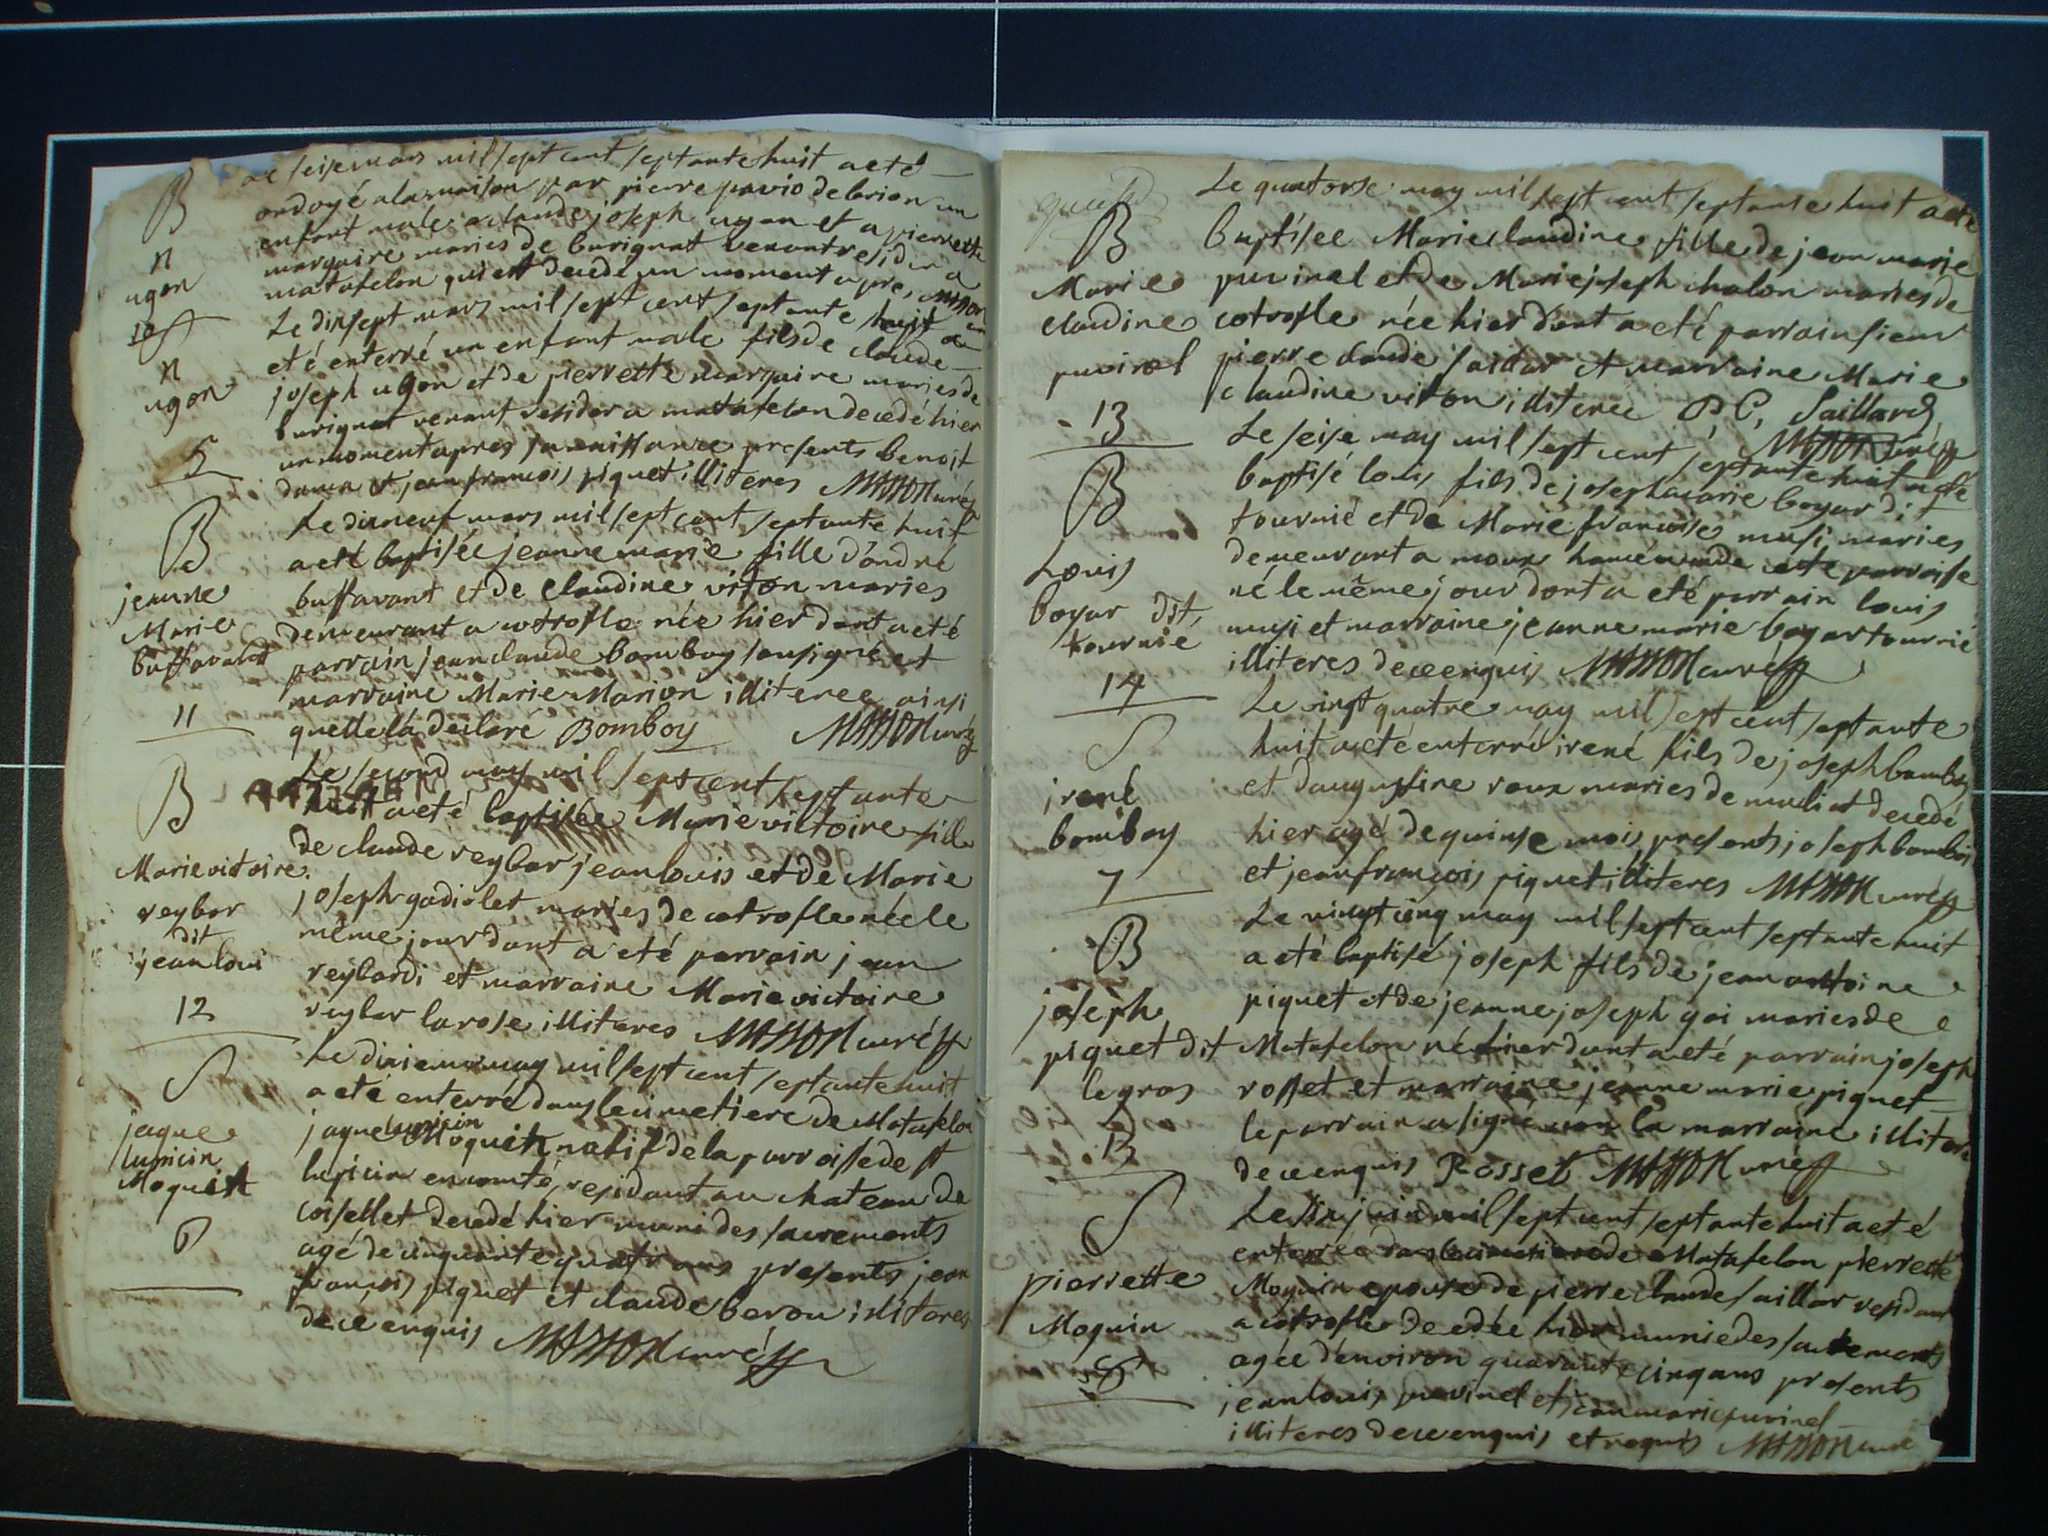 B
n
ugon
10
Le seise mars mil sept cent septante huit a eté
ondoyé a la maison par pierre pavio de brion un
enfant male a claude joseph ugon et a pierrette
marquaire maries de burignat venant resider a
matafelon qui est decedé un moment apres MASSON
S
n
ugon
5
Le dix sept mars mil sept cent septante huit a
eté enterré un enfant male fils de claude
joseph ugon et de pierrette marquaire maries de
burignat venant resider a matafelon decedé hier
un moment apres sa naissance presents benoit
et jean francois piquet illiteres MASSON curé
B
jeanne
Marie
buffavand
11
Le dixneuf mars mil sept cent septante huit
a eté baptisée jeanne marie fille d'andré
buffavant et de claudine viton maries
demeurant a cotrofle née hier dont a eté
parrain jean claude bomboy sousigné et
marraine Marie Marion illiteree ainsi
quelle la declaré Bomboy MASSON curé
B
Marie victoire
reybar
dit
jean loui
12
Le second may mil sept cent septante
huit a eté baptisée Marie victoire fille
de claude reybar jean louis et de Marie
joseph gadiolet maries de cotrofle née le
même jour dont a eté parrain jean
reybardi et marraine Marie victoire
reybar larose illiteres MASSON curé
S
jaque
lupicin
Moquin
6
Le dixieme may mil sept cent septante huit
a eté enterré dans le cimetiere de Matafelon
jaque lupicin Moquin natif de la parroisse de st
lupicin en comté, residant au chateau de
coiselet decedé hier muni des sacrements
agé de cinquante quatr ans presents jean
françois piquet et claude berou illiteres
de ce enquis MASSON curé
B
Marie
claudine
puvinel
13
Le quatorse may mil sept cent septante huit a eté
baptisée Marie claudine fille de jean marie
puvinel et de Marie joseph chalon maries de
cotrofle née hier dont a eté parrain sieur
pierre claude saidar et marraine Marie
claudine viton illiteree P, C, Saillard
MASSON curé
B
Louis
boyar dit
tournie
14
Le seise may mil sept cent septante huit a eté
baptisé louis fils de joseph marie boyar dit
tournié et de Marie francoise musi maries
demeurant a moux hameau de cete parroisse
né le même jour dont a eté parrain louis
musi et marraine jeanne marie boyar tournié
illiteres de ce enquis MASSON curé
S
irené
bomboy
7
Le vingt quatre may mil sept cent septante
huit a eté enterré irené fils de joseph bomboy
et d'augustine roux maries de muliat decedé
hier agé de quinse mois presents joseph bomboi
et jean françois piquet illiteres MASSON curé
B
joseph
piquet dit
legros
15
Le vingt cinq may mil sept cent septante huit
a eté baptisé joseph fils de jean antoine
piquet et de jeanne joseph goi maries de
Matafelon né hier dont a eté parrain joseph
rosset et marraine jeanne marie piquet
le parrain a signé non la marraine illitere
de ce enquis Rosset MASSON curé
S
pierrette
Moquin
8
Le six juin mil sept cent septante huit a eté
enterrée dans le cimetiere de Matafelon pierrette
Moquin epouse de pierre claude saillar residant
a cotrofle decedée hier munie des sacrements
agée d'environ quarante cinq ans presents
jean louis puvinel et jean marie puvinel
illiteres de ce enquis et requis MASSON curé